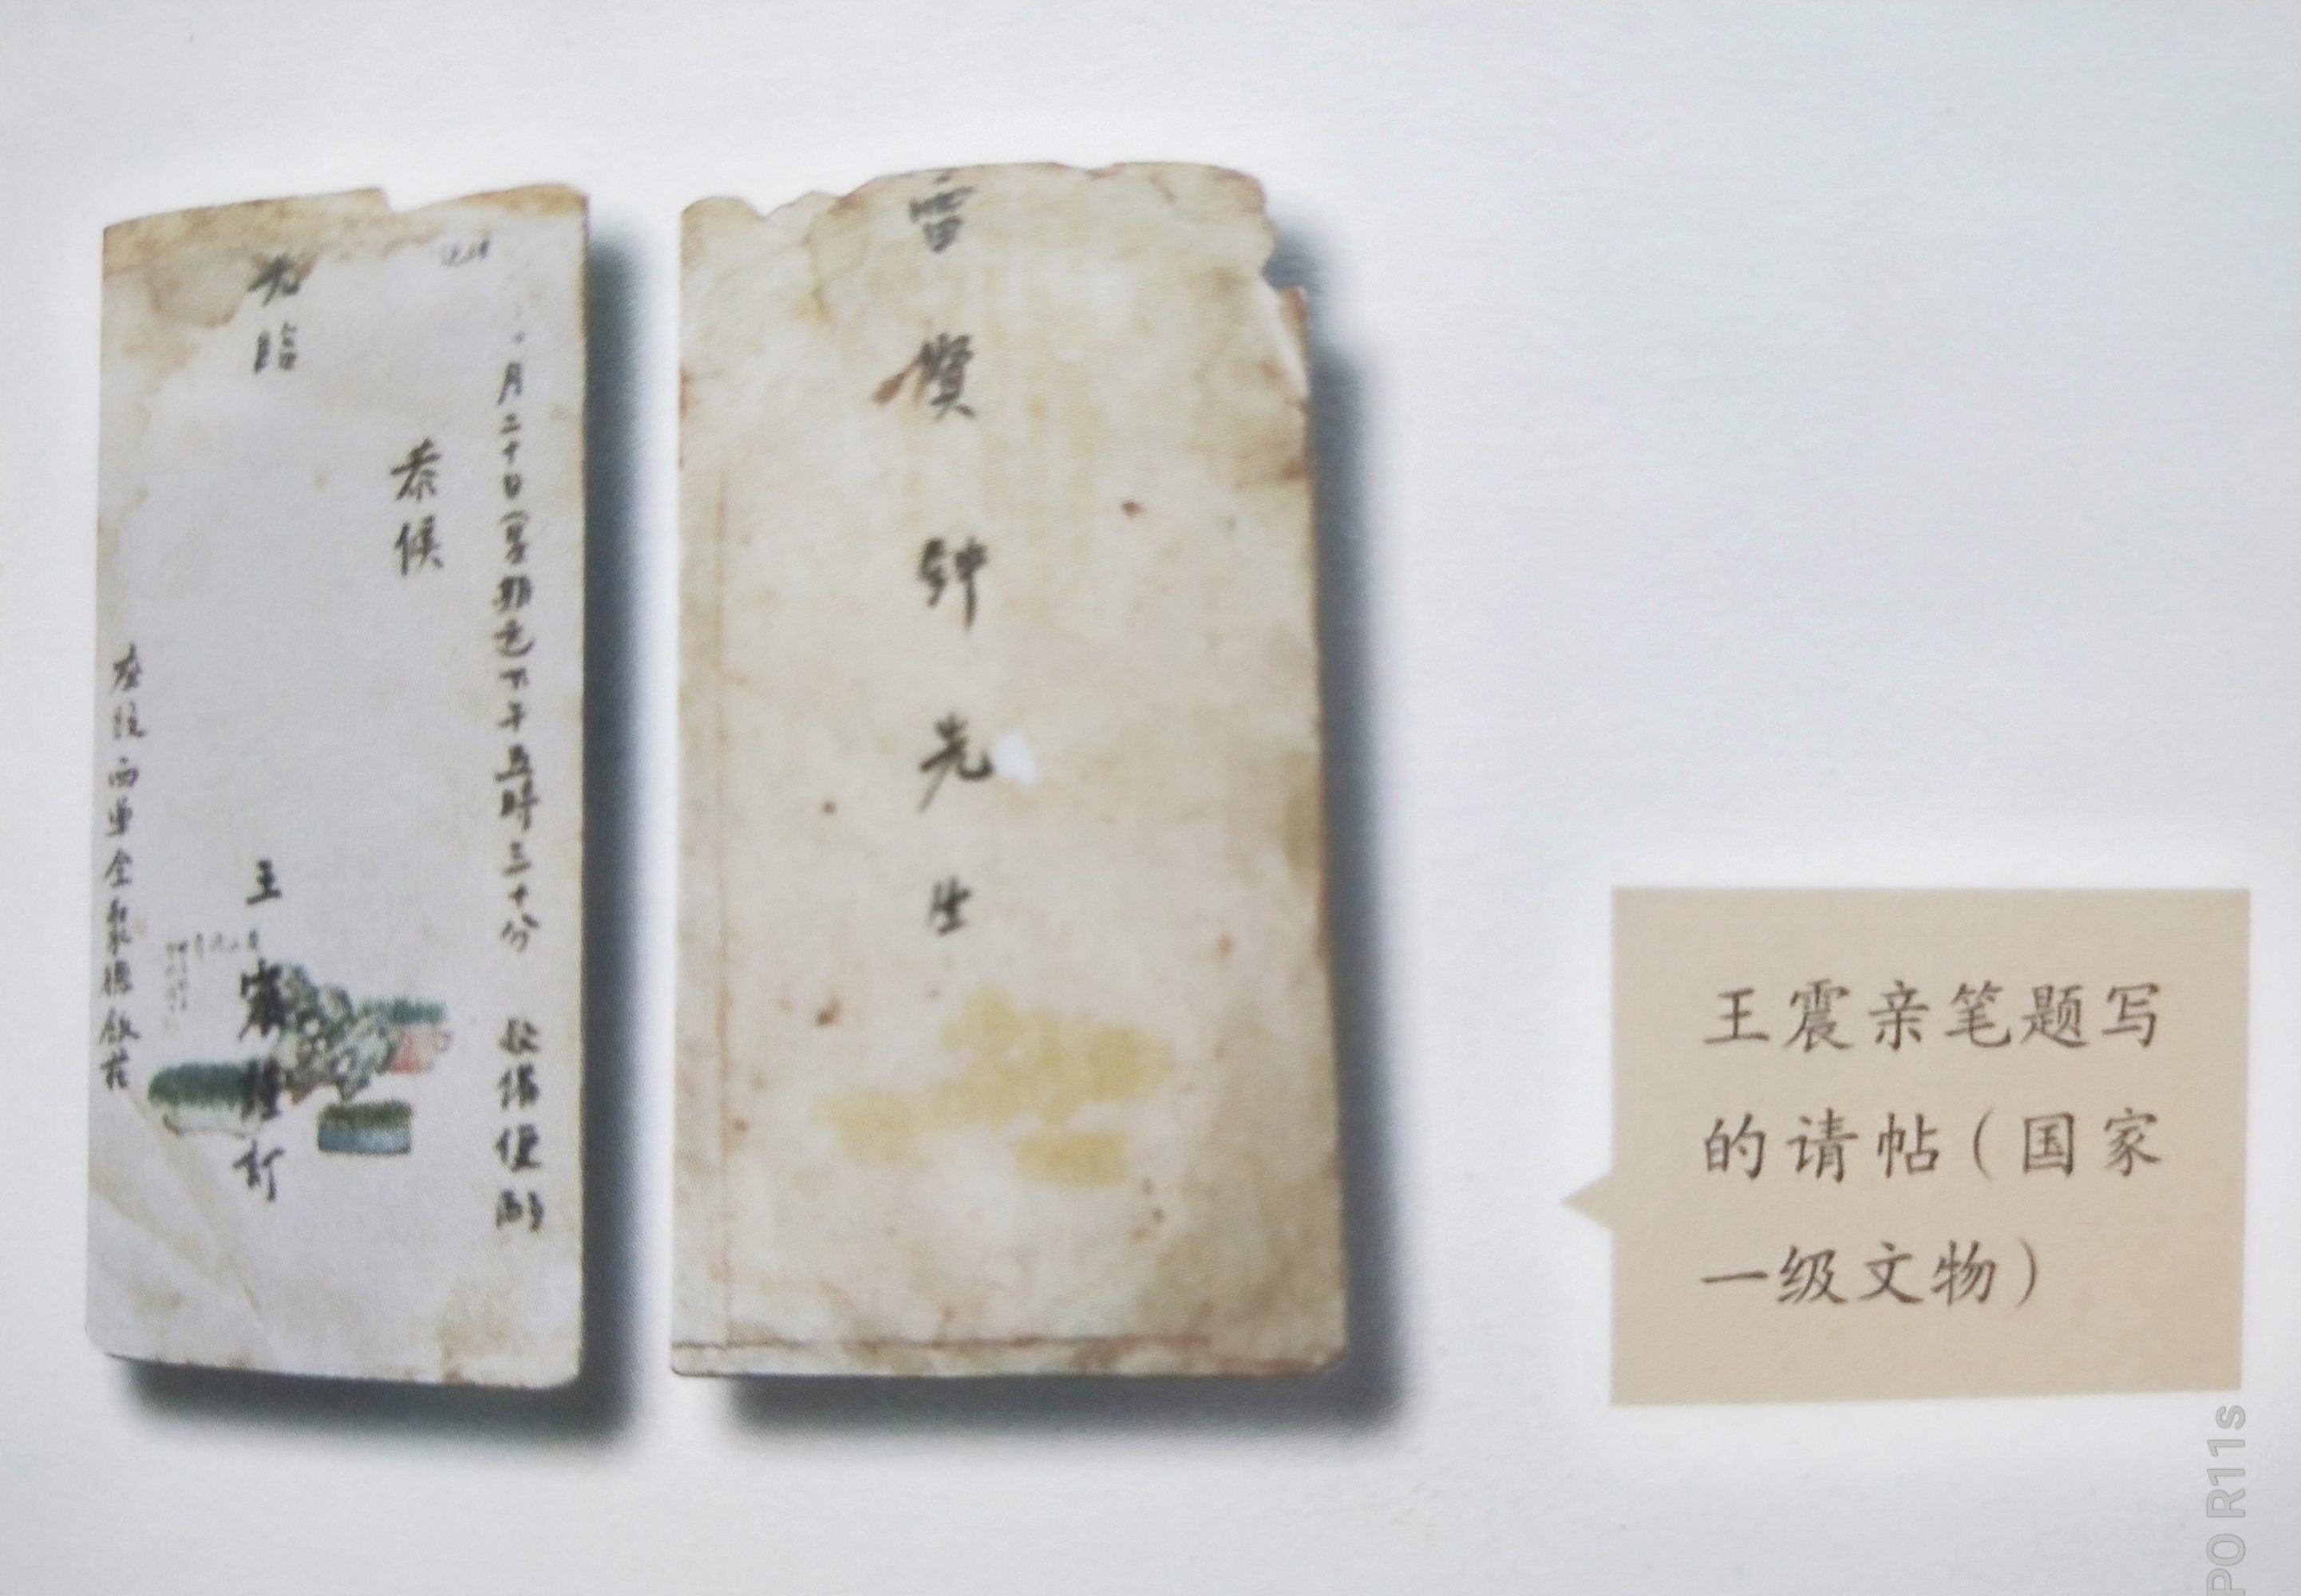 月二十日(星期六)下午五時三十分 敬備便酌
恭候
光臨
王震謹訂
座設西單全聚德飯莊
雷賢钟先生
王震亲笔题写
的请帖(国家
一级文物)
PO R11s